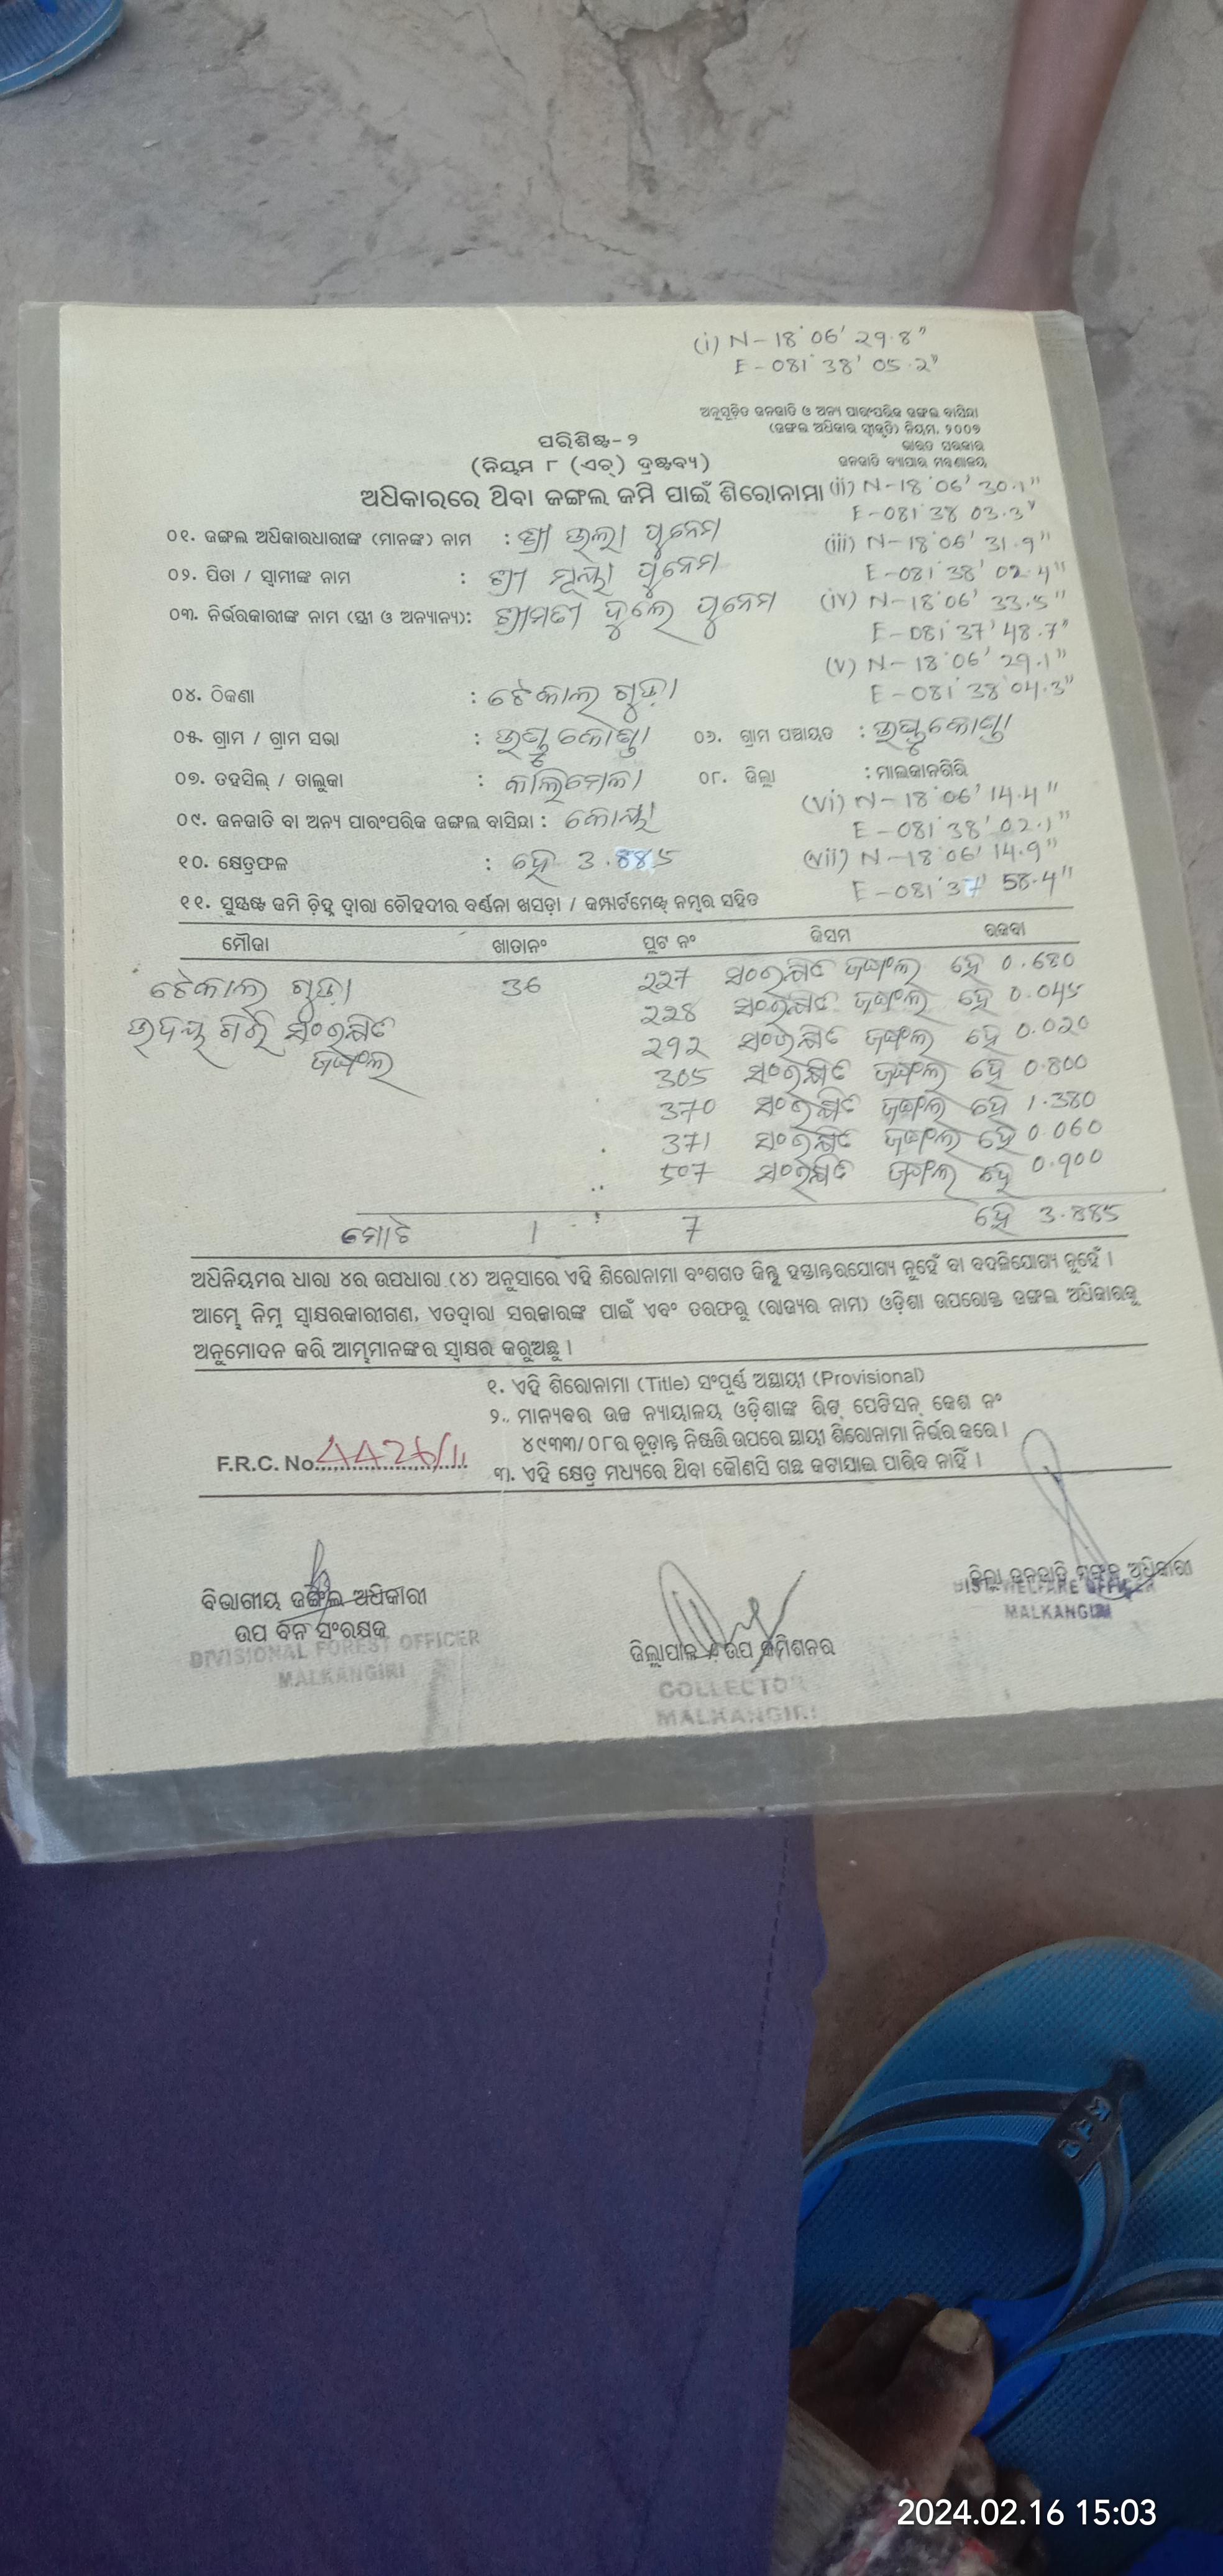 (i) N-18°06' 29.8"
E-081°38' 05.2"
ଅନୁସୂଚିତ ଜନଜାତି ଓ ଅନ୍ୟ ପାରଂପରିକ ଜଙ୍ଗଲ ବାସିନ୍ଦା
(ଜଙ୍ଗଲ ଅଧିକାର ସ୍ବୀକୃତି) ନିୟମ, ୨୦୦୭
ଭାରତ ସରକାର
ଜନଜାତି ବ୍ୟାପାର ମନ୍ତ୍ରଣାଳୟ
ପରିଶିଷ୍ଟ-୨
(ନିୟମ ୮ (ଏଚ୍) ଦ୍ରଷ୍ଟବ୍ୟ)
ଅଧିକାରରେ ଥିବା ଜଙ୍ଗଲ ଜମି ପାଇଁ ଶିରୋନାମା
(ii) N-18°06' 30.1"
E-081°38 03.3"
୦୧. ଜଙ୍ଗଲ ଅଧିକାରଧାରୀଙ୍କ (ମାନଙ୍କ) ନାମ : ଶ୍ରୀ ଉଲା ପୁନେମ
(iii) N-18°06' 31.9"
E-081°38' 02.4"
୦୨. ପିତା / ସ୍ୱାମୀଙ୍କ ନାମ : ଶ୍ରୀ ମୂୟା ପୁନେମ
୦୩. ନିର୍ଭରକାରୀଙ୍କ ନାମ (ସ୍ତ୍ରୀ ଓ ଅନ୍ୟାନ୍ୟ): ଶ୍ରୀମତୀ ଦୁଲେ ପୁନେମ
(iv) N-18°06' 33.5"
E-081°37' 48.7"
(v) N-18°06' 29.1"
E-081°38' 04.3"
୦୪. ଠିକଣା : ଟେକାଲ ଗୁଡ଼ା
୦୫. ଗ୍ରାମ / ଗ୍ରାମ ସଭା : ଉସ୍କୁକୋଣ୍ଡା ୦୬. ଗ୍ରାମ ପଞ୍ଚାୟତ : ଉସ୍କୁକୋଣ୍ଡା
୦୭. ତହସିଲ୍ / ତାଲୁକା : କାଲିମେଳା ୦୮. ଜିଲ୍ଲା : ମାଲକାନଗିରି
(vi) N-18°06' 14.4"
E-081°38' 02.1"
୦୯. ଜନଜାତି ବା ଅନ୍ୟ ପାରଂପରିକ ଜଙ୍ଗଲ ବାସିନ୍ଦା : କୋୟା
(vii) N-18°06' 14.9"
E-081°37' 58.4"
୧୦. କ୍ଷେତ୍ରଫଳ : ହେ 3.885
୧୧. ସୁସ୍ପଷ୍ଟ ଜମି ଚିହ୍ନ ଦ୍ୱାରା ଚୌହଦୀର ବର୍ଣ୍ଣନା ଖସଡ଼ା / କମ୍ପାର୍ଟମେଣ୍ଟ ନମ୍ବର ସହିତ
ମୌଜା ଖାତାନଂ ପ୍ଲଟ ନଂ କିସମ ରକବା
ଟେକାଲ ଗୁଡ଼ା 36 227 ସଂରକ୍ଷିତ ଜଙ୍ଗଲ ହେ 0.680
ଉଦୟ ଗିରି ସଂରକ୍ଷିତ 228 ସଂରକ୍ଷିତ ଜଙ୍ଗଲ ହେ 0.045
ଜଙ୍ଗଲ 292 ସଂରକ୍ଷିତ ଜଙ୍ଗଲ ହେ 0.020
305 ସଂରକ୍ଷିତ ଜଙ୍ଗଲ ହେ 0.800
370 ସଂରକ୍ଷିତ ଜଙ୍ଗଲ ହେ 1.380
371 ସଂରକ୍ଷିତ ଜଙ୍ଗଲ ହେ 0.060
507 ସଂରକ୍ଷିତ ଜଙ୍ଗଲ ହେ 0.900
ମୋଟ 1 7 ହେ 3.885
ଅଧିନିୟମର ଧାରା ୪ର ଉପଧାରା (୪) ଅନୁସାରେ ଏହି ଶିରୋନାମା ବଂଶଗତ କିନ୍ତୁ ହସ୍ତାନ୍ତରଯୋଗ୍ୟ ନୁହେଁ ବା ବଦଳିଯୋଗ୍ୟ ନୁହେଁ ।
ଆମ୍ଭେ ନିମ୍ନ ସ୍ୱାକ୍ଷରକାରୀଗଣ, ଏତଦ୍ୱାରା ସରକାରଙ୍କ ପାଇଁ ଏବଂ ତରଫରୁ (ରାଜ୍ୟର ନାମ) ଓଡ଼ିଶା ଉପରୋକ୍ତ ଜଙ୍ଗଲ ଅଧିକାରକୁ
ଅନୁମୋଦନ କରି ଆମ୍ଭମାନଙ୍କର ସ୍ୱାକ୍ଷର କରୁଅଛୁ ।
୧. ଏହି ଶିରୋନାମା (Title) ସଂପୂର୍ଣ୍ଣ ଅସ୍ଥାୟୀ (Provisional)
୨. ମାନ୍ୟବର ଉଚ୍ଚ ନ୍ୟାୟାଳୟ ଓଡ଼ିଶାଙ୍କ ରିଟ୍ ପେଟିସନ୍ କେଶ ନଂ
୪୯୩୩/୦୮ର ଚୂଡ଼ାନ୍ତ ନିଷ୍ପତ୍ତି ଉପରେ ସ୍ଥାୟୀ ଶିରୋନାମା ନିର୍ଭର କରେ ।
F.R.C. No.
୩. ଏହି କ୍ଷେତ୍ର ମଧ୍ୟରେ ଥିବା କୌଣସି ଗଛ କଟାଯାଇ ପାରିବ ନାହିଁ ।
ବିଭାଗୀୟ ଜଙ୍ଗଲ ଅଧିକାରୀ
ଉପ ବନ ସଂରକ୍ଷକ
DIVISIONAL FOREST OFFICER
MALKANGIRI
ଜିଲ୍ଲାପାଳ / ଉପ କମିଶନର
COLLECTOR
MALKANGIRI
ଜିଲ୍ଲା ଜନଜାତି ମଙ୍ଗଳ ଅଧିକାରୀ
DIST WELFARE OFFICER
MALKANGIRI
2024.02.16 15:03